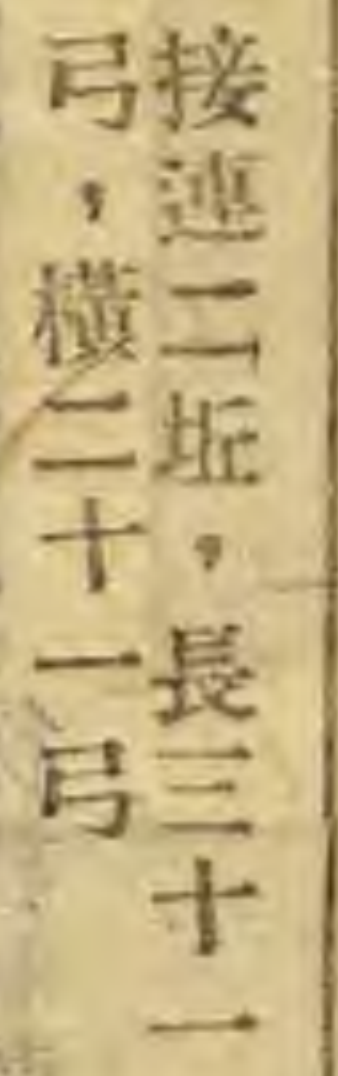 接連二坵，長三十一
弓，橫二十一弓